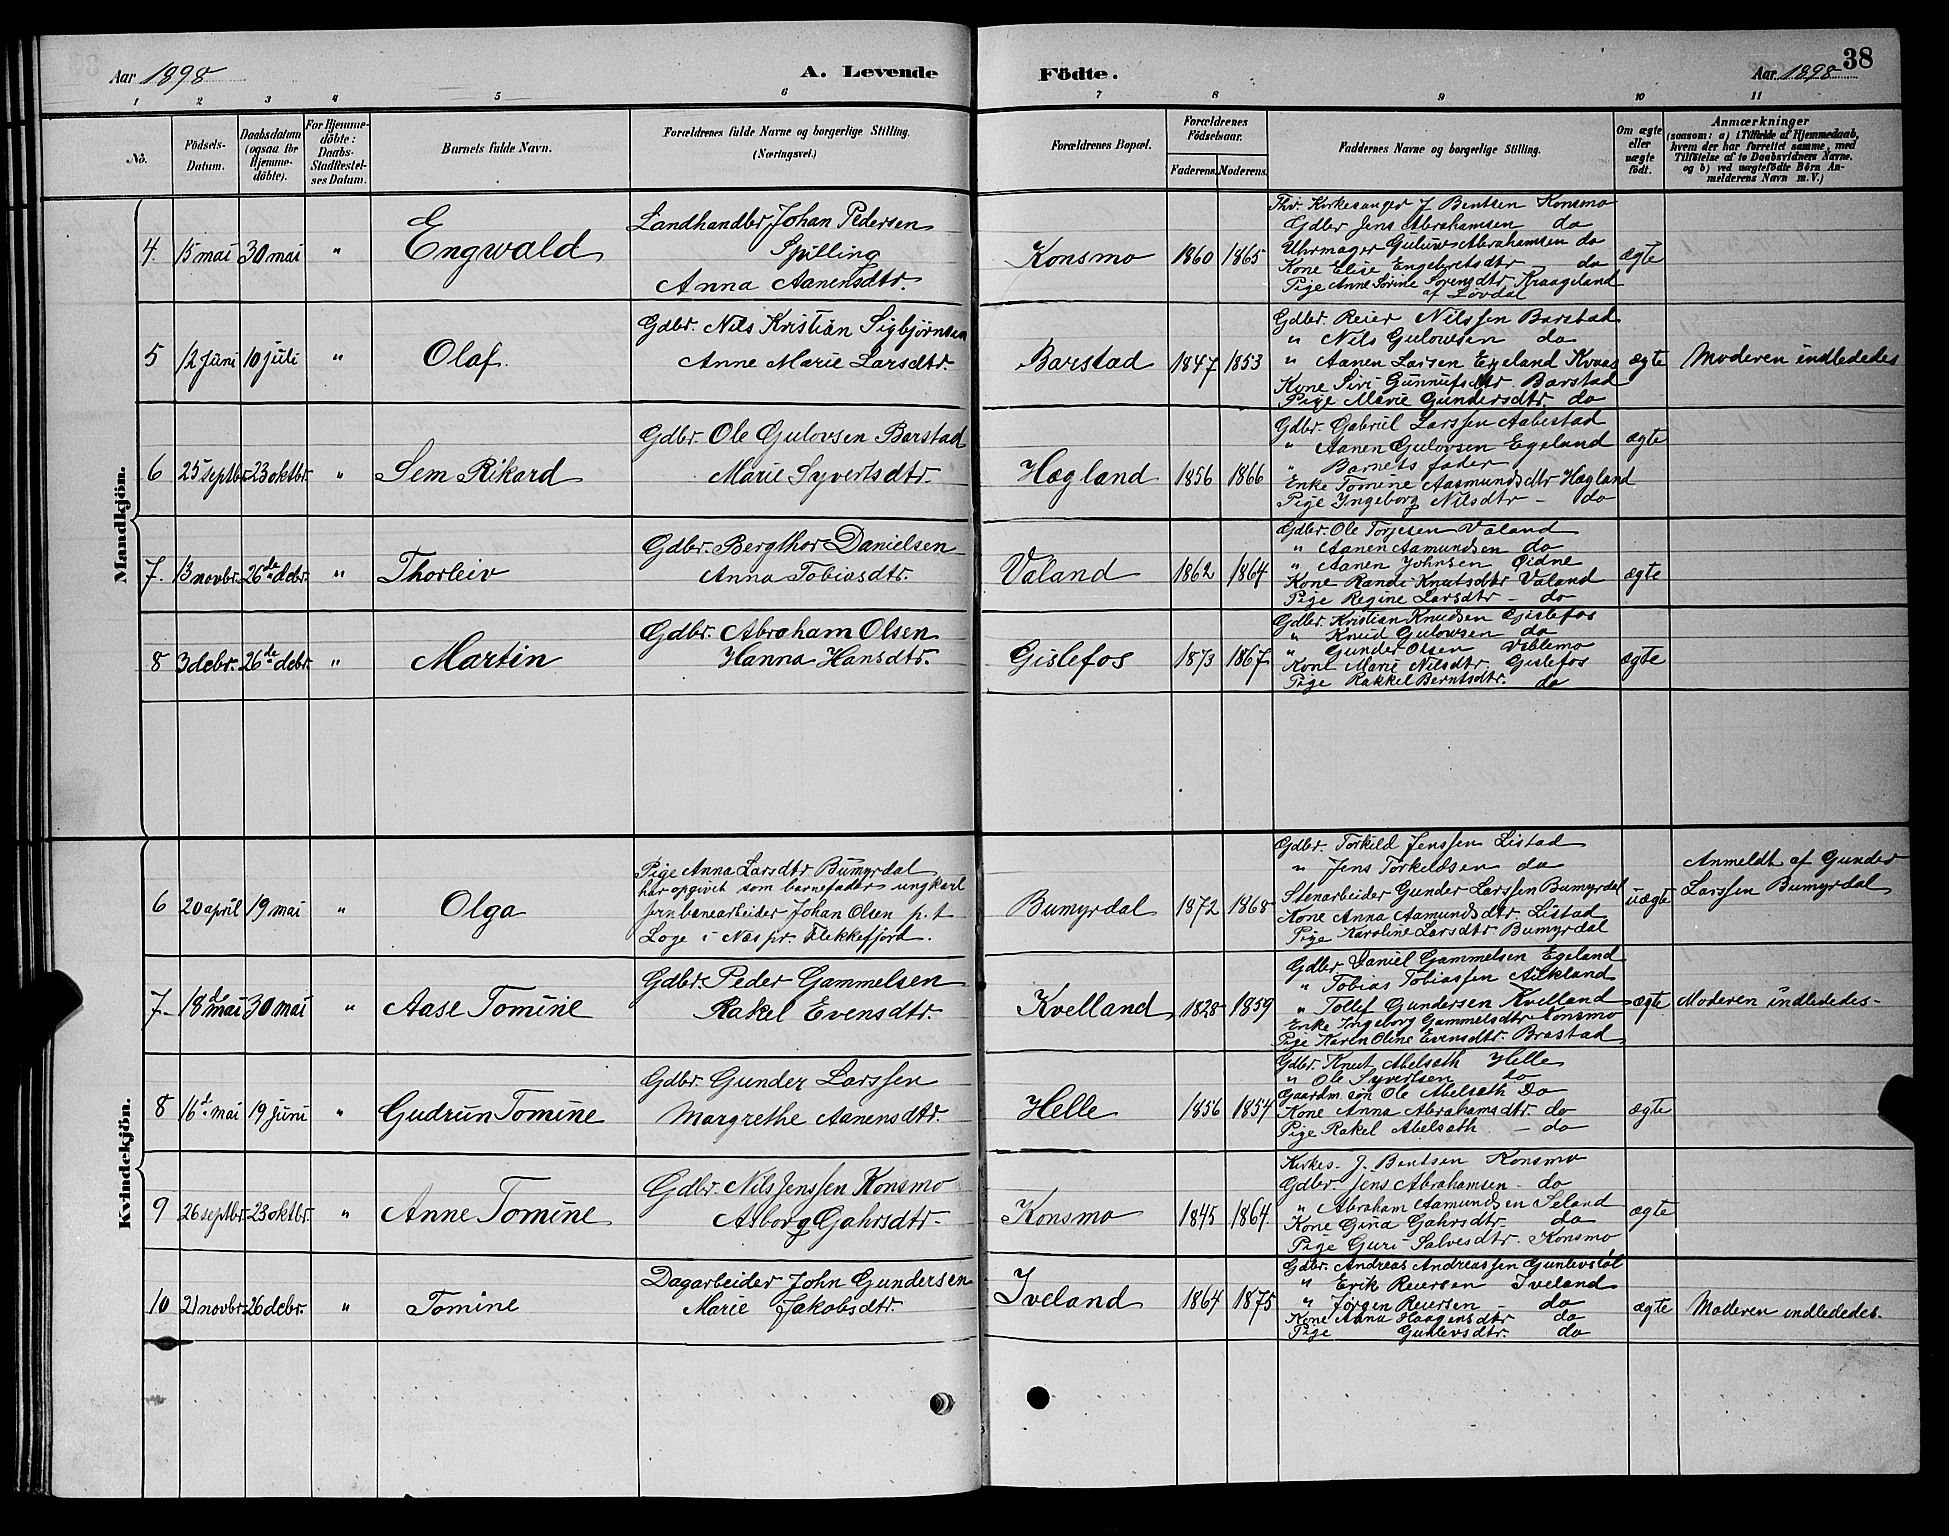 Aar 1898
A. Levende
Födte.
Aar 1898
38
1 2 3 4 5 6 7 8 9 10 11
No.
Födsels-Datum.
Daabsdatum (ogsaa for Hjemme-döbte).
For Hjemme-döbte: Daabs-Stadfæstel-ses Datum.
Barnets fulde Navn.
Forældrenes fulde Navne og borgerlige Stilling. (Næringsvei.)
Forældrenes Bopæl.
Forældrenes Födselsaar.
Faderens. Moderens.
Faddernes Navne og borgerlige Stilling.
Om ægte eller uægte födt.
Anmærkninger
(saasom: a) i Tilfælde af Hjemmedaab,
hvem der har forrettet samme, med
Tilföielse af to Daabsvidners Navne,
og b) ved uægtefödte Börn An-
melderens Navn m.V.)
Mandkjön.
4. 15 mai 30 mai " Engwald
Landhandlr Johan Pedersen
Spilling
Anna Aanensdtr.
Konsmo 1860 1865
Thv. Kirkesanger J Bentsen Konsmo
Gdbr Jens Abrahamsen do
Uhrmager Gulow Abrahamsen do
Kone Elise Engebretsdtr - do
Pige Anne Sörine Sorensdtr Kraageland
af Lövdal
ægte
5 12 Juni 10 juli " Olaf.
Gdbr. Nils Kristian Sigbjörnsen
Anne Marie Larsdtr.
Barstad 1847 1853
Gdbr. Reier Nilssen Barstad
" Nils Gulowsen do
" Aanen Larsen Egeland Kvaas
Kone Siri Gunnufsdtr. Barstad
Pige Marie Gundersdtr. do
ægte Moderen indlededes
6 25 septbr. 23 oktbr. " Sem Rikard
Gdbr. Ole Gulovsen Barstad
Marie Syvertsdtr.
Hægland 1856 1866
Gdbr. Gabriel Larssen Aabestad
" Aanen Gulovsen Egeland
" Barnets fader
Enke Tomine Aasmundsdtr Hægland
Pige Ingeborg Nilsdtr - do
ægte
7. 13 novbr. 26de debr. " Thorleiv
Gdbr. Bergthor Danielsen
Anna Tobiasdtr.
Valand 1862 1864
Gdbr. Ole Torjesen Valand
" Aanen Aamundsen do
" Aanen Johnsen Öidne
Kone Randi Knutsdtr Valand
Pige Regine Larsdtr - do
ægte
8 3 debr. 26de debr. " Martin
Gdbr. Abraham Olsen
Hanna Hansdtr.
Gislefos 1873 1867.
Gdbr. Kristian Knudsen Gislefos
" Knud Gulowsen do
" Gunder Olsen Viblemo
Kone Marie Nilsdtr. Gislefos
Pige Rakkel Berntsdtr. do
ægte
Kvindekjön.
6 20 april 19 mai " Olga
Pige Anna Larsdtr Bumyrdal
har opgivet som barnefader ungkarl
jernbanearbeider Johan Olsen p.t
Loge i Næs pr. Flekkefjord.
Bumyrdal 1872 1868
Gdbr. Torkild Jenssen Listad
" Jens Torkeldsen do
Stenarbeider Gunder Larssen Bumyrdal
Kone Anna Aamundsdtr. Listad
Pige Karoline Larsdtr Bumyrdal
uægte
Anmeldt af Gunder
Larssen Bumyrdal
7. 18d mai 30 mai " Aase Tomine
Gdbr. Peder Gammelsen
Rakel Evensdtr.
Kvelland 1828 1859
Gdbr. Daniel Gammelsen Egeland
" Tobias Tobiassen
" Tollef Gundersen Kvelland
Enke Ingeborg Gammelsdtr Konsmo
Pige Karen Oline Evensdtr. Brastad
ægte Moderen indlededes-
8 16d. mai 19 juni " Gudrun Tomine
Gdbr. Gunder Larssen
Margrethe Aanensdtr.
Helle 1856 1854
Gdbr. Knut Abelseth Helle
" Ole Syvertsen do
Gaardm. søn Ole Abelseth Do
Kone Anna Abrahamsdtr. do
Pige Rakel Abelseth. - do
ægte
9 26 septbr. 23 oktbr. " Anne Tomine
Gdbr. Nils Jenssen Konsmo
Asborg Gahrsdtr.
Konsmo 1845 1864.
Kirkes. J. Bentsen Konsmo
Gdbr. Jens Abrahamsen - do
" Abraham Aamundsen Seland
Kone Gina Gahrsdtr. do
Pige Guri Salvesdtr. Konsmo
ægte
10 21 novbr. 26 debr. " Tomine
Dagarbeider John Gundersen
Marie Jakobsdtr.
Iveland 1864 1875
Gdbr. Andreas Andreassen Gunlevstøl
" Erik Reiersen Iveland
" Jörgen Reiersen - do
Kone Anna Haagensdtr do
Pige Gunlevsdtr. do
ægte Moderen indlededes.